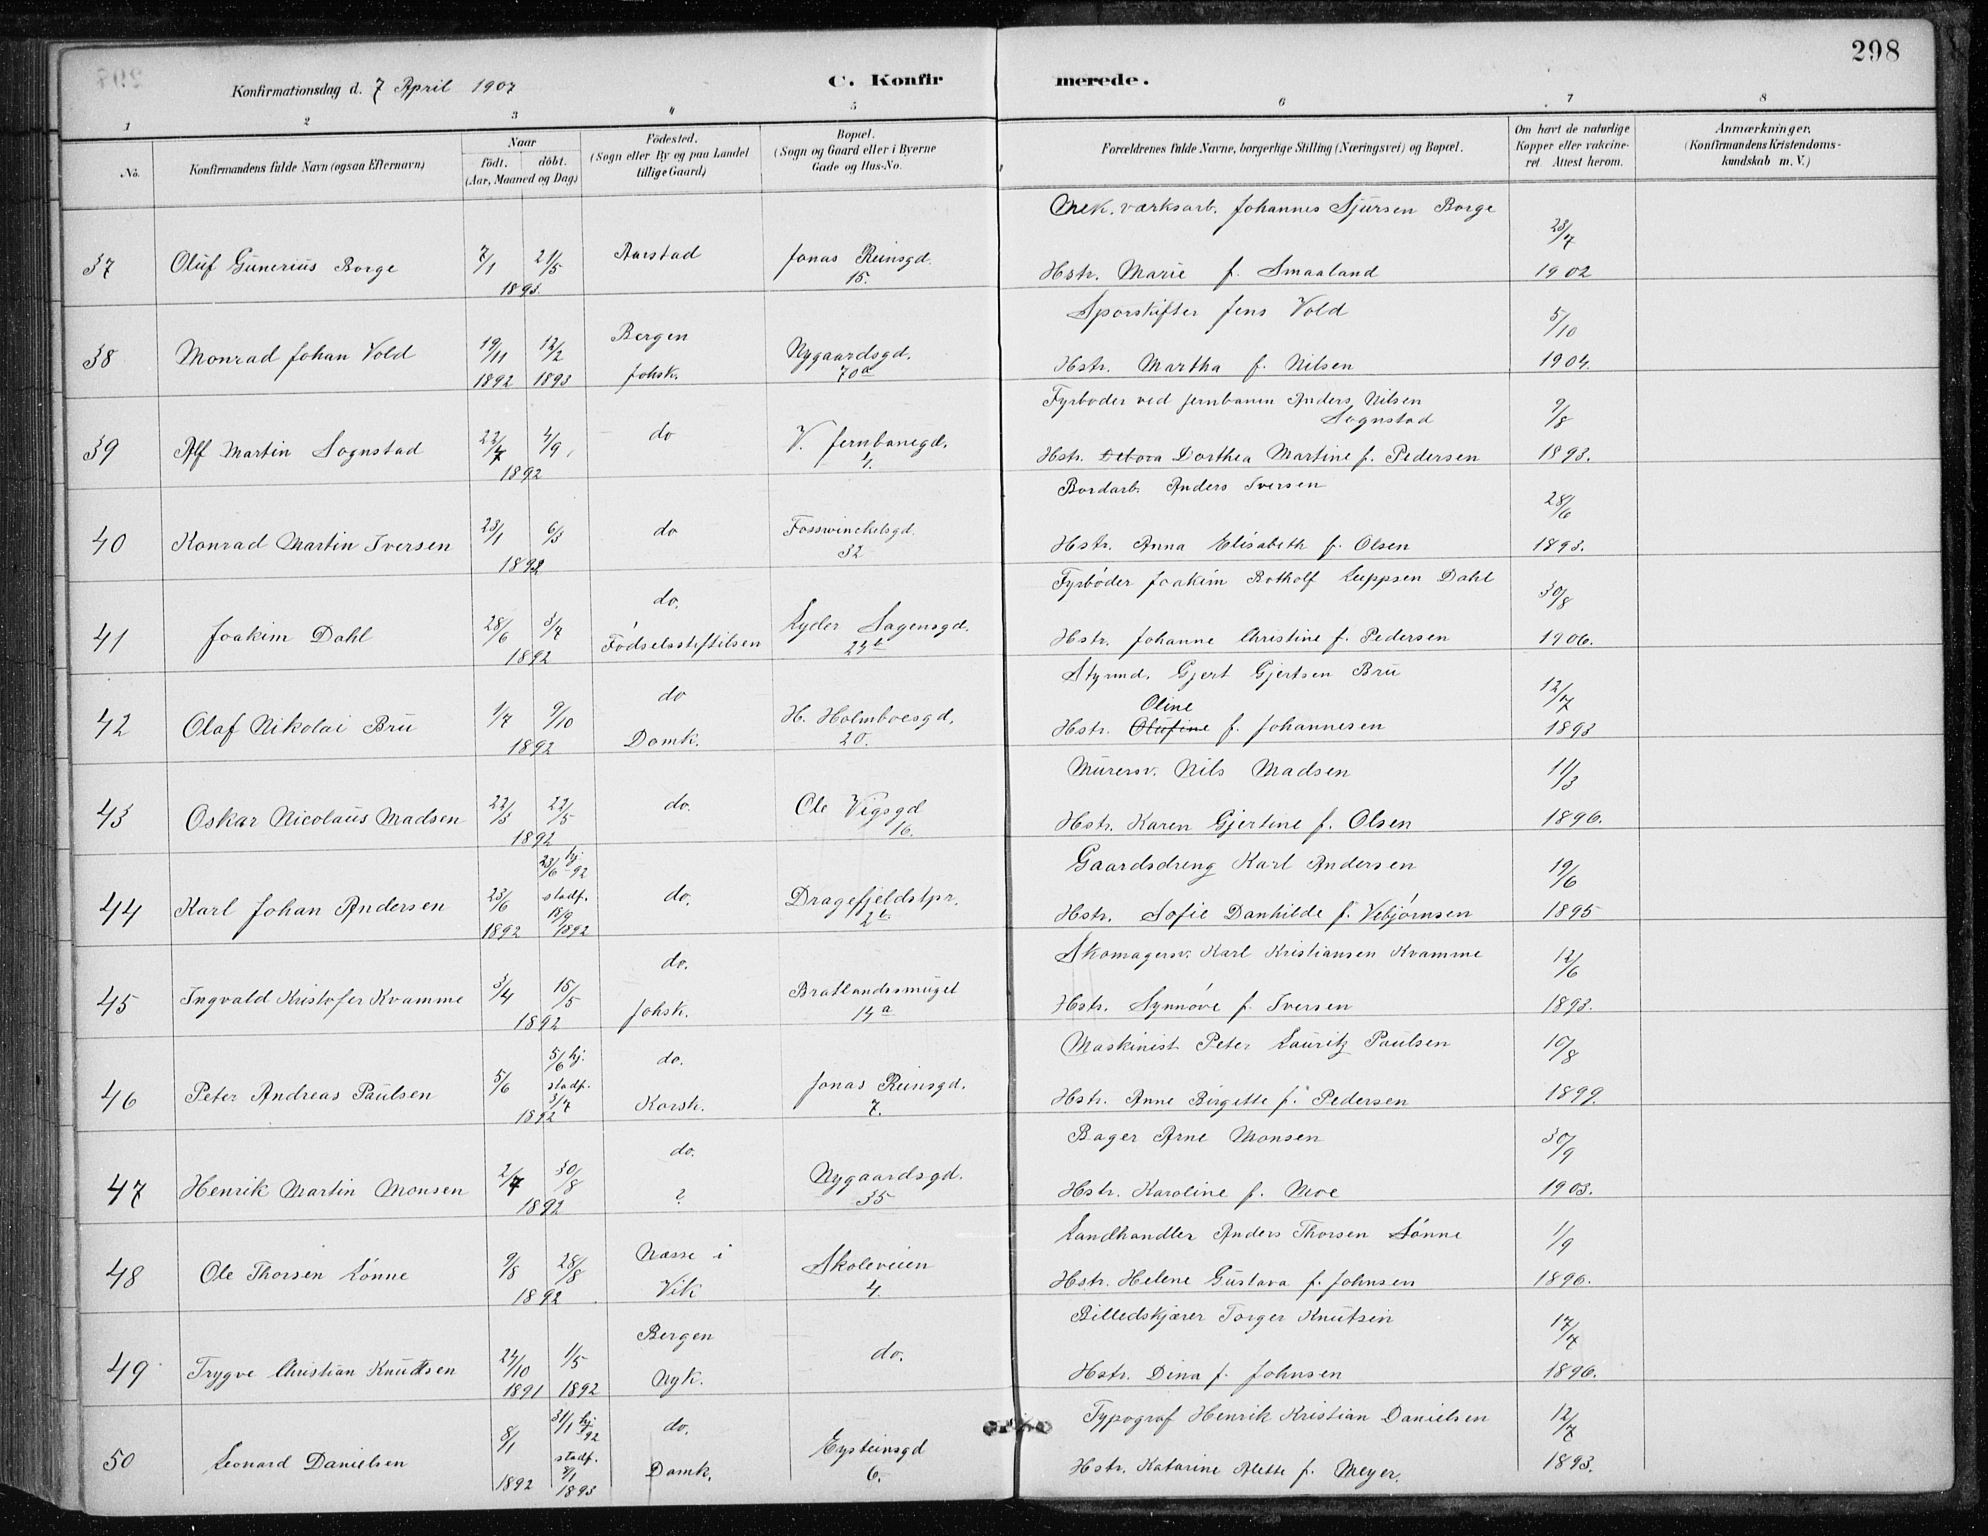 298
Konfirmationsdag d. 7 April 1907
C. Konfirmerede.
1 2 3 4 5 6 7 8
No.
Konfirmandens fulde Navn (ogsaa Efternavn)
Naar
födt. döbt.
(Aar, Maaned og Dag)
Födested.
(Sogn eller By og paa Landet
tillige Gaard)
Bopæl.
(Sogn og Gaard eller i Byerne
Gade og Hus-No.
Forældrenes fulde Navne, borgerlige Stilling (Næringsvei) og Bopæl.
Om havt de naturlige
Kopper eller vakcine-
ret. Attest herom.
Anmærkninger.
(Konfirmandens Kristendoms-
kundskab m. V.)
37 Oluf Gunerius Borge 7/1 21/5 1893 Aarstad Jonas Reinsgd. 15.
Mek. værksarb. Johannes Sjursen Borge 23/7
Hstr. Marie f. Smaaland 1902
38 Monrad Johan Vold 19/11 1892 12/2 1893 Bergen Johsk. Nygaardsgd. 70a
Sporskifter Jens Vold 5/10
Hstr. Martha f. Nilsen 1904.
39 Alf Martin Sognstad 22/7 4/9 1892 do V. Jernbanegd. 4.
Fyrbøder ved Jernbanen Anders Nilsen
Sognstad 9/8
Hstr. Dorthea Martine f. Pedersen 1893.
40 Konrad Martin Iversen 23/1 6/3 1892 do Fosswinckelsgd. 32
Bordarb. Anders Iversen 28/6
Hstr. Anna Elisabeth f. Olsen 1893.
41 Joakim Dahl 28/6 3/7 1892 do. Fødselsstiftelsen Lyder Sagensgd. 23b
Fyrbøder Joakim Botholf Luppsen Dahl 30/8
Hstr. Johanne Christine f. Pedersen 1906.
42 Olaf Nikolai Bru 1/7 9/10 1892 do Domk. H. Holmboesgd. 20.
Styrmd. Gjert Gjertsen Bru 12/7
Oline
Hstr. Olufine f. Johannesen 1893
43 Oskar Nicolaus Madsen 22/3 22/5 1892 do. Ole Vigsgd 16.
Murersv. Nils Madsen 11/3
Hstr. Karen Gjertine f. Olsen 1896.
44 Karl Johan Andersen 23/6 1892 23/6 hj. 92 stadf. 18/9 1892 do. Dragefjeldstpr. 2b
Gaardsdreng Karl Andersen 19/6
Hstr. Sofie Danhilde f. Vebjørnsen 1895
45 Ingvald Kristofer Kvamme 3/4 15/5 1892 do. Johsk. Bratlandssmuget 13a
Skomagersv. Karl Kristiansen Kvamme 12/6
Hstr. Synnøve f. Iversen 1893.
46 Peter Andreas Paulsen 5/6 5/6 hj. stadf. 3/7 1892 do. Korsk. Jonas Reinsgd. 7.
Maskinist Peter Lauritz Paulsen 10/8
Hstr. Anne Birgitte f. Pedersen 1899.
47 Henrik Martin Monsen 2/7 30/8 1892 do. ? Nygaardsgd. 35
Bager Arne Monsen 30/9
Hstr. Karoline f. Moe 1903.
48 Ole Thorsen Lønne 9/8 28/8 1892 Næsse i Vik Skoleveien 4.
Landhandler Anders Thorsen Lønne 1/9
Hstr. Helene Gustava f. Johnsen 1896.
49 Trygve Christian Knudtsen 24/10 1891 1/5 1892 Bergen Nyk. do.
Billedskjærer Torger Knutsen 17/7
Hstr. Dina f. Johnsen 1896.
50 Leonard Danielsen 8/1 1892 31/1 hj. 92 stadf. 8/1 1893 do. Domk. Eysteinsgd 6.
Typograf Henrik Kristian Danielsen 12/7
Hstr. Katarine Alette f. Meyer. 1893.